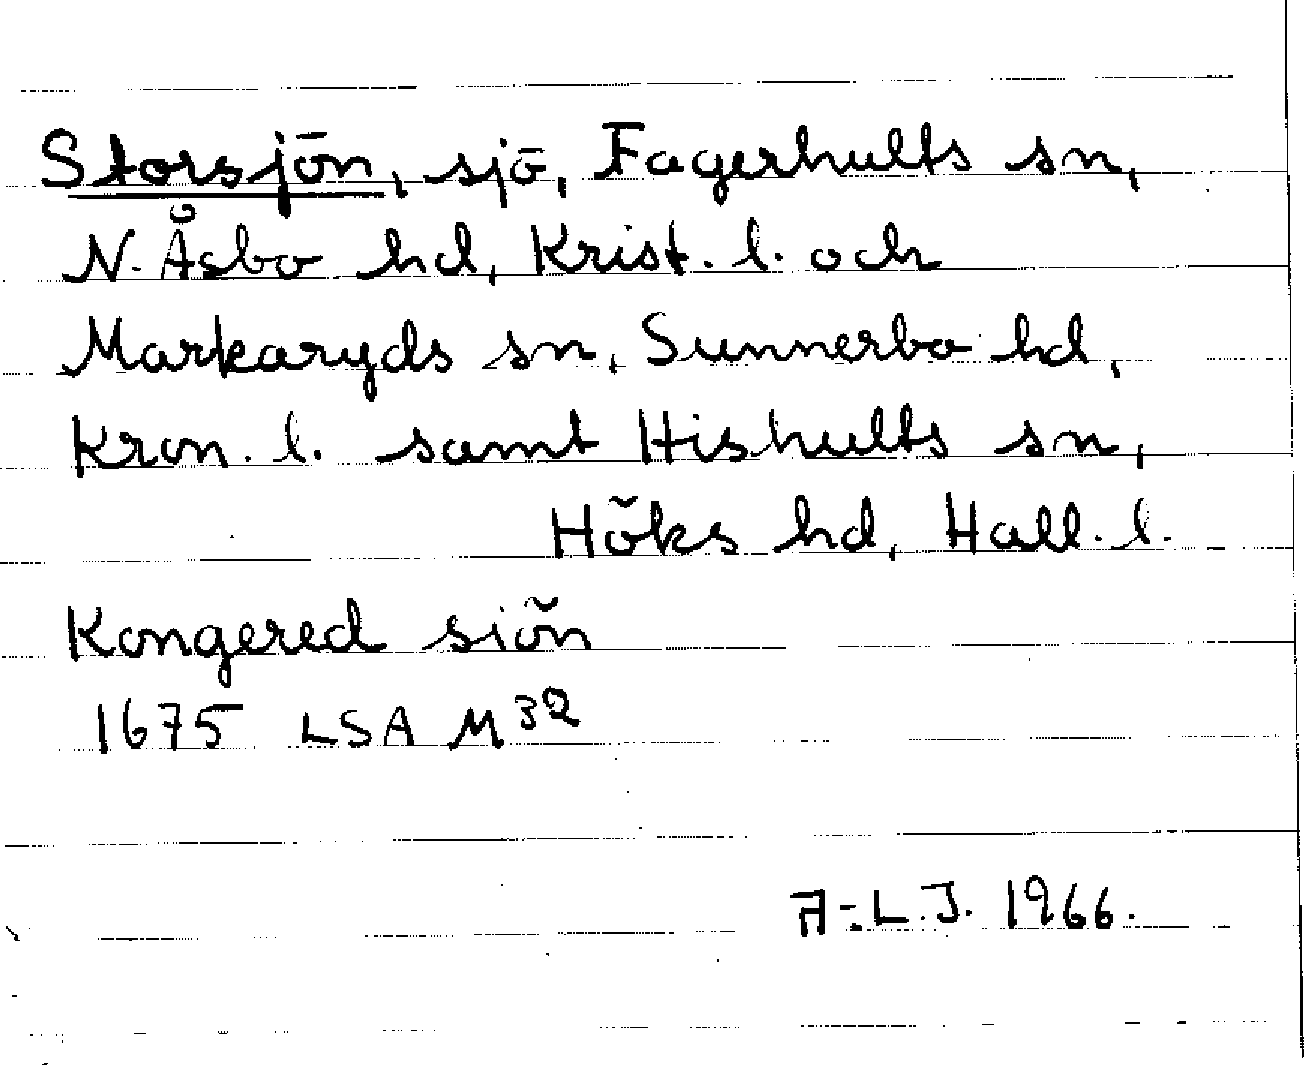 Storsjön, sjö, Fagerhults sn,
N. Åsbo hd, Krist. l. och
Markaryds sn, Sunnerbo hd,
Kron. l. samt Hishults sn,
Höks hd, Hall. l.
Kongered siön
1675 LSA M32
A-L.J. 1966.